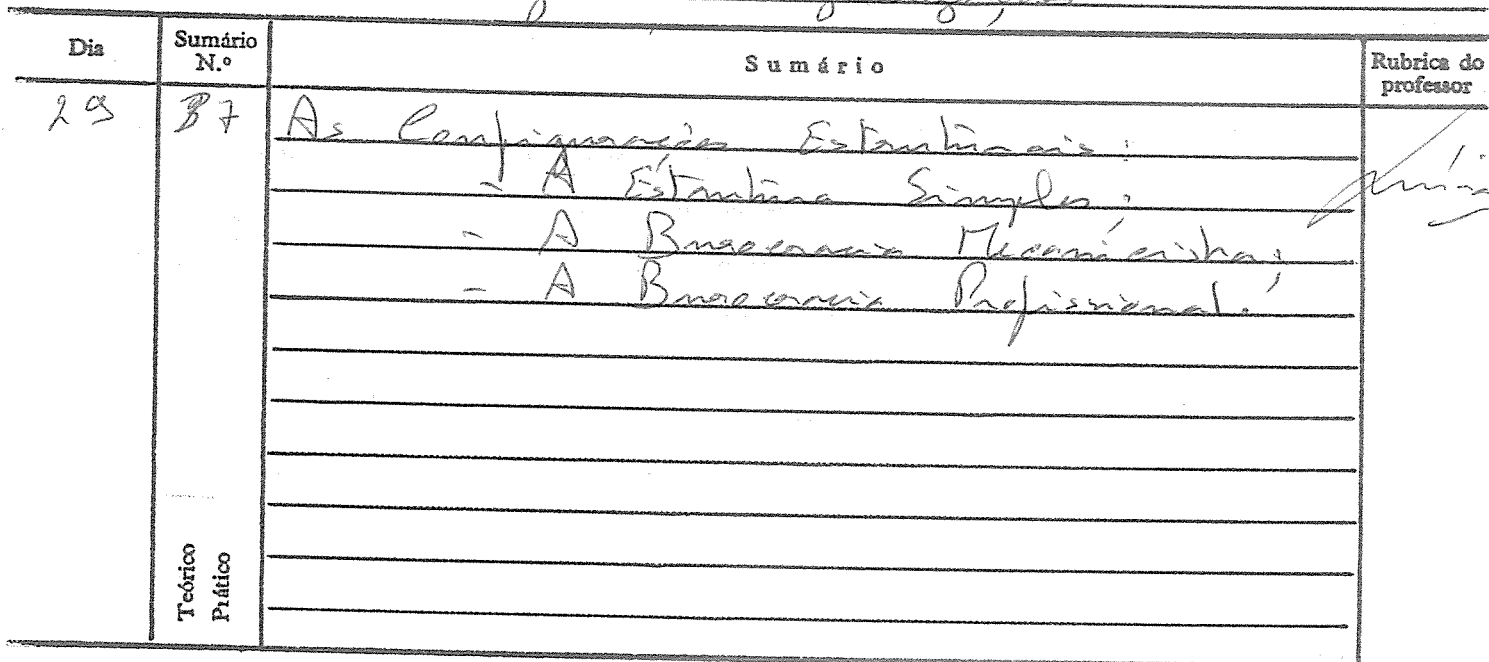 Dia Sumário N.º Sumário Rubrica do professor
29 37 As Configurações Estruturais:
- A Estrutura Simples;
- A Burocracia Mecanicista;
- A Burocracia Profissional.
Teórico
Prático